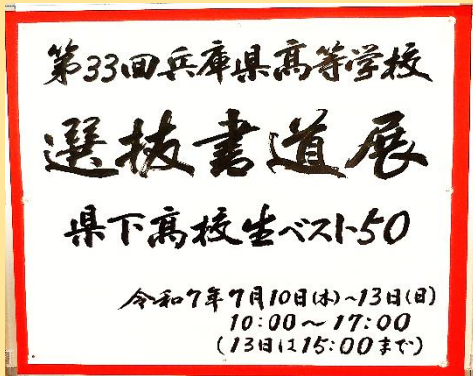 第33回兵庫県高等学校
選抜書道展
県下高校生ベスト50
令和7年7月10日(木)~13日(日)
10:00~17:00
(13日は15:00まで)